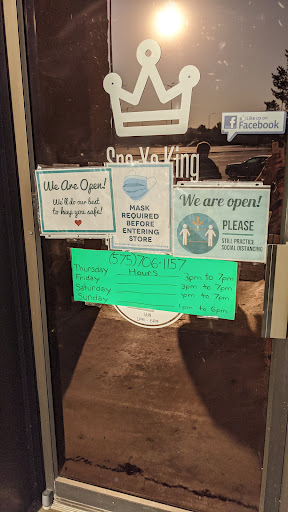 LIKE US ON
Facebook
Sno Yo King
We Are Open!
We'll do our best
to keep you safe!
MASK
REQUIRED
BEFORE
ENTERING
STORE
We are open!
PLEASE
STILL PRACTICE
SOCIAL DISTANCING
(575)706-1157
Hours
Thursday 3pm to 7pm
Friday 3pm to 7pm
Saturday pm to 7pm
Sunday pm to 6pm
SUN